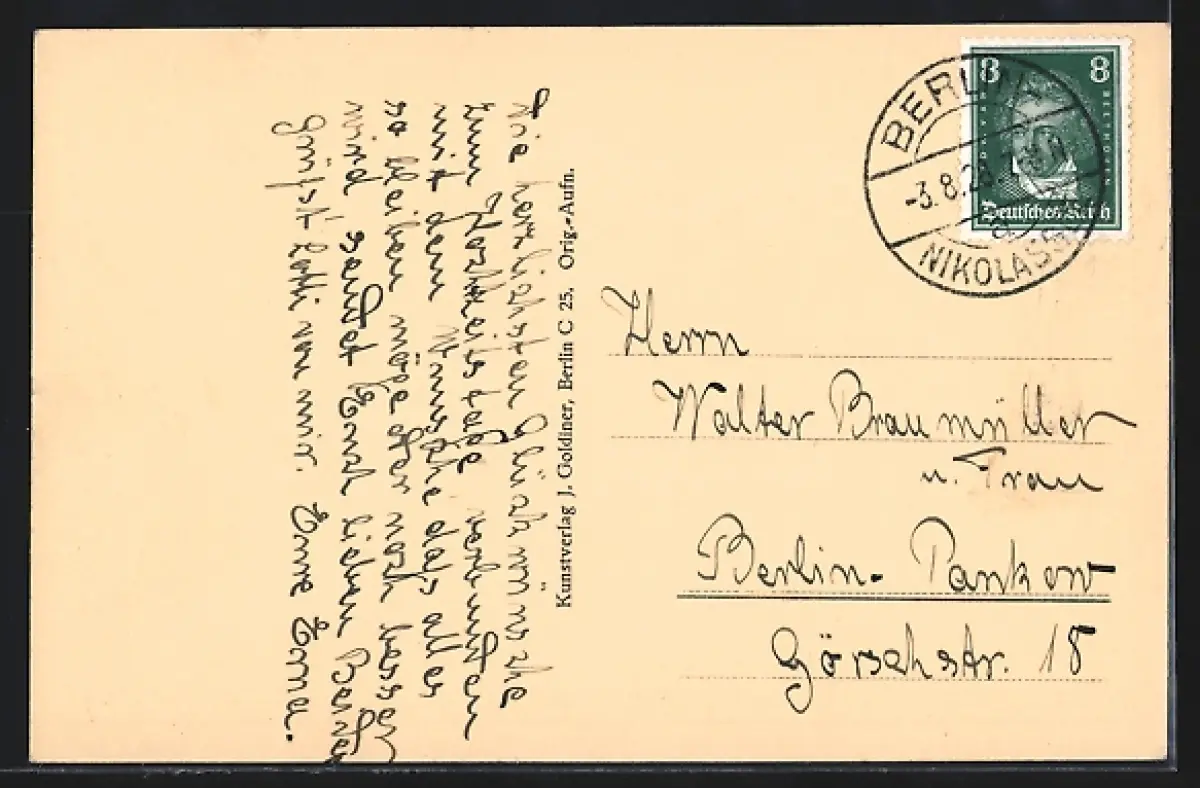 Die herzlichsten Glückwünsche
zum Hochzeitstage verbunden
mit dem Wunsche das alles
so bleiben möge oder noch besser
wird sendet Euch lieben
Grüßt von mir. Eure Erna.
Kunstverlag J. Goldiner, Berlin C 25. Orig.-Aufn.
8 8
BEETHOVEN
Deutsches Reich
BERLIN-
-3.8.28
NIKOLASS
Herrn
Walter Braumüller
u. Frau
Berlin-Pankow
Görschstr. 15